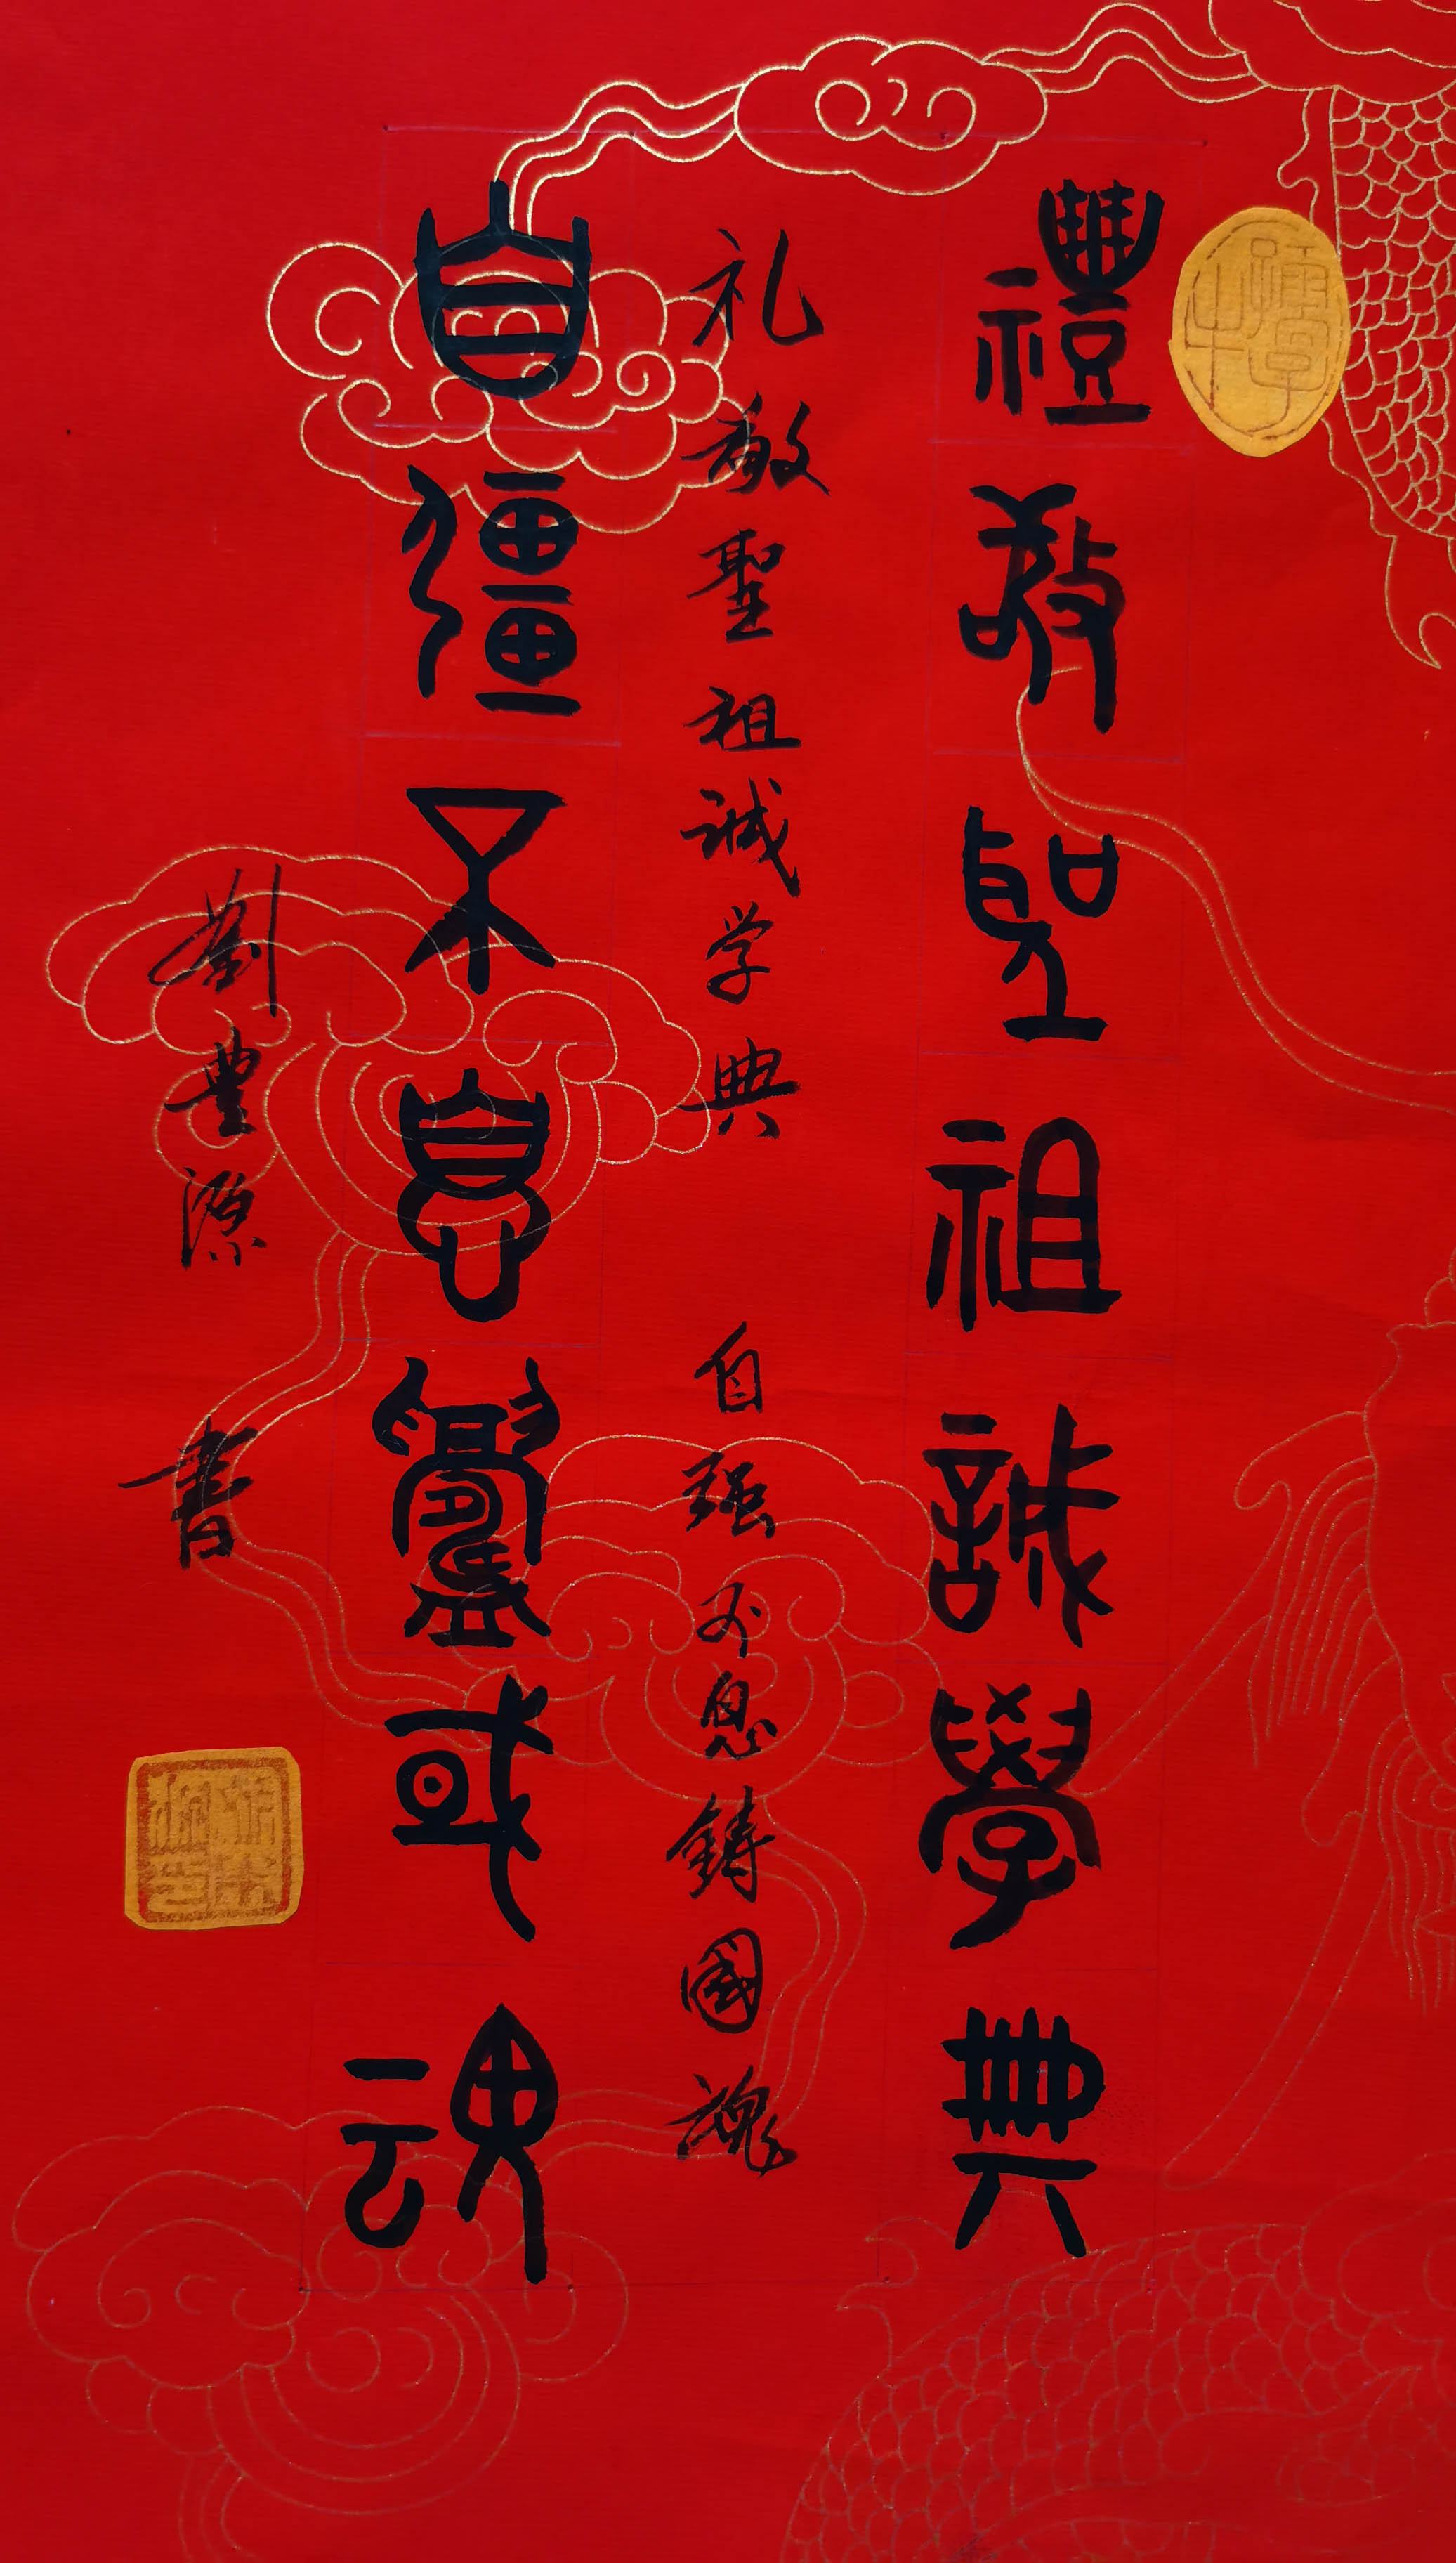 禮敬聖祖誠學典
礼敬聖祖诚学典 自强不息鑄國魂
自彊不息鑄或魂
劉豊源 書